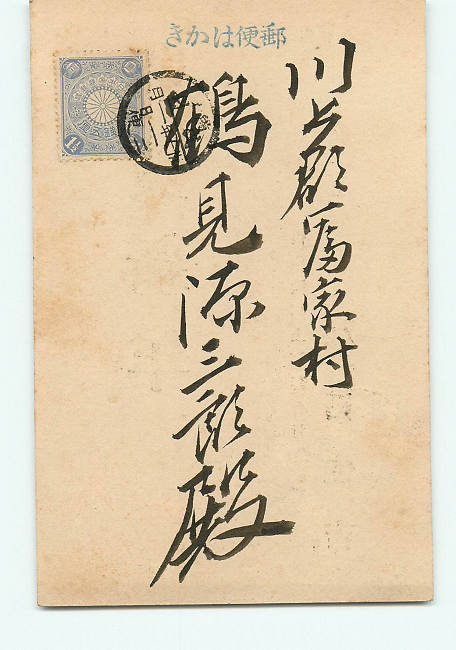 郵便はかき
川上郡富家村
鶴見源三郎殿